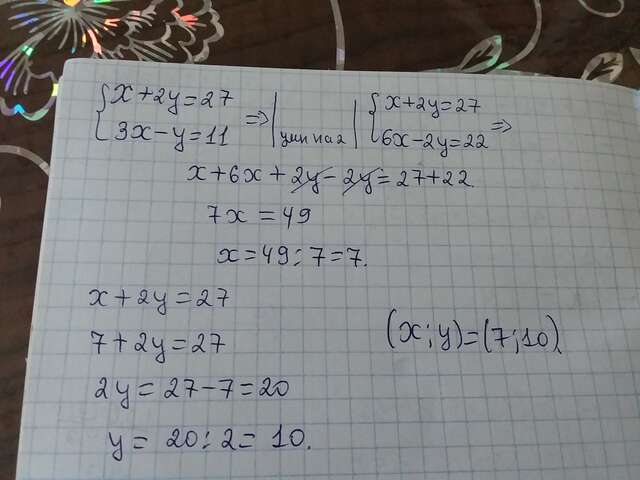 {x+2y=27
{3x-y=11 => | умн на 2 | {x+2y=27
{6x-2y=22 =>
x+6x+2y-2y=27+22
7x=49
x=49:7=7.
x+2y=27
7+2y=27
2y=27-7=20
y=20:2=10.
(x;y)=(7;10)